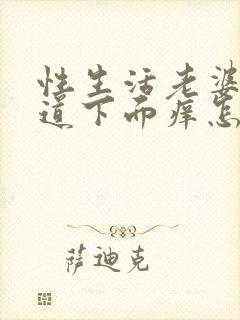 性生活老婆
道下面痒怎
萨迪克